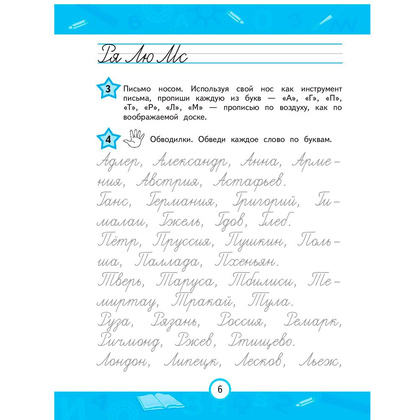 Ря Лю Мс
3 Письмо носом. Используя свой нос как инструмент
письма, пропиши каждую из букв — «А», «Г», «П»,
«Т», «Р», «Л», «М» — прописью по воздуху, как по
воображаемой доске.
4 Обводилки. Обведи каждое слово по буквам.
Адлер, Александр, Анна, Арме-
ния, Австрия, Астафьев.
Ганс, Германия, Григорий, Ги-
малаи, Гжель, Гдов, Глеб.
Пётр, Пруссия, Пушкин, Поль-
ша, Паллада, Пхеньян.
Тверь, Таруса, Тбилиси, Те-
миртау, Тракай, Тула.
Руза, Рязань, Россия, Ремарк,
Ричмонд, Ржев, Ртищево.
Лондон, Липецк, Лесков, Льеж,
6